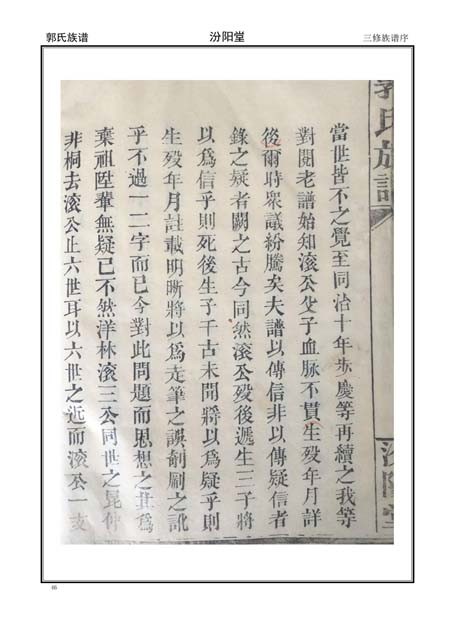 郭氏族谱
汾阳堂
三修族谱序
郭氏族譜
汾陽堂
當世皆不之覺至同治十年步慶等再續之我等
對閱老譜始知滚公父子血脉不貫生殁年月詳
後爾時衆議紛騰矣夫譜以傳信非以傳疑信者
錄之疑者闕之古今同然滚公殁後遞生三子將
以爲信乎則死後生子千古未聞將以爲疑乎則
生殁年月註載明晰將以爲走筆之誤剞劂之訛
乎不過一二字而已今對此問題而思想之其爲
棄祖陞輩無疑已不然洋林滚三公同世之昆仲
非桐去滚公止六世耳以六世之近而滚公一支
46